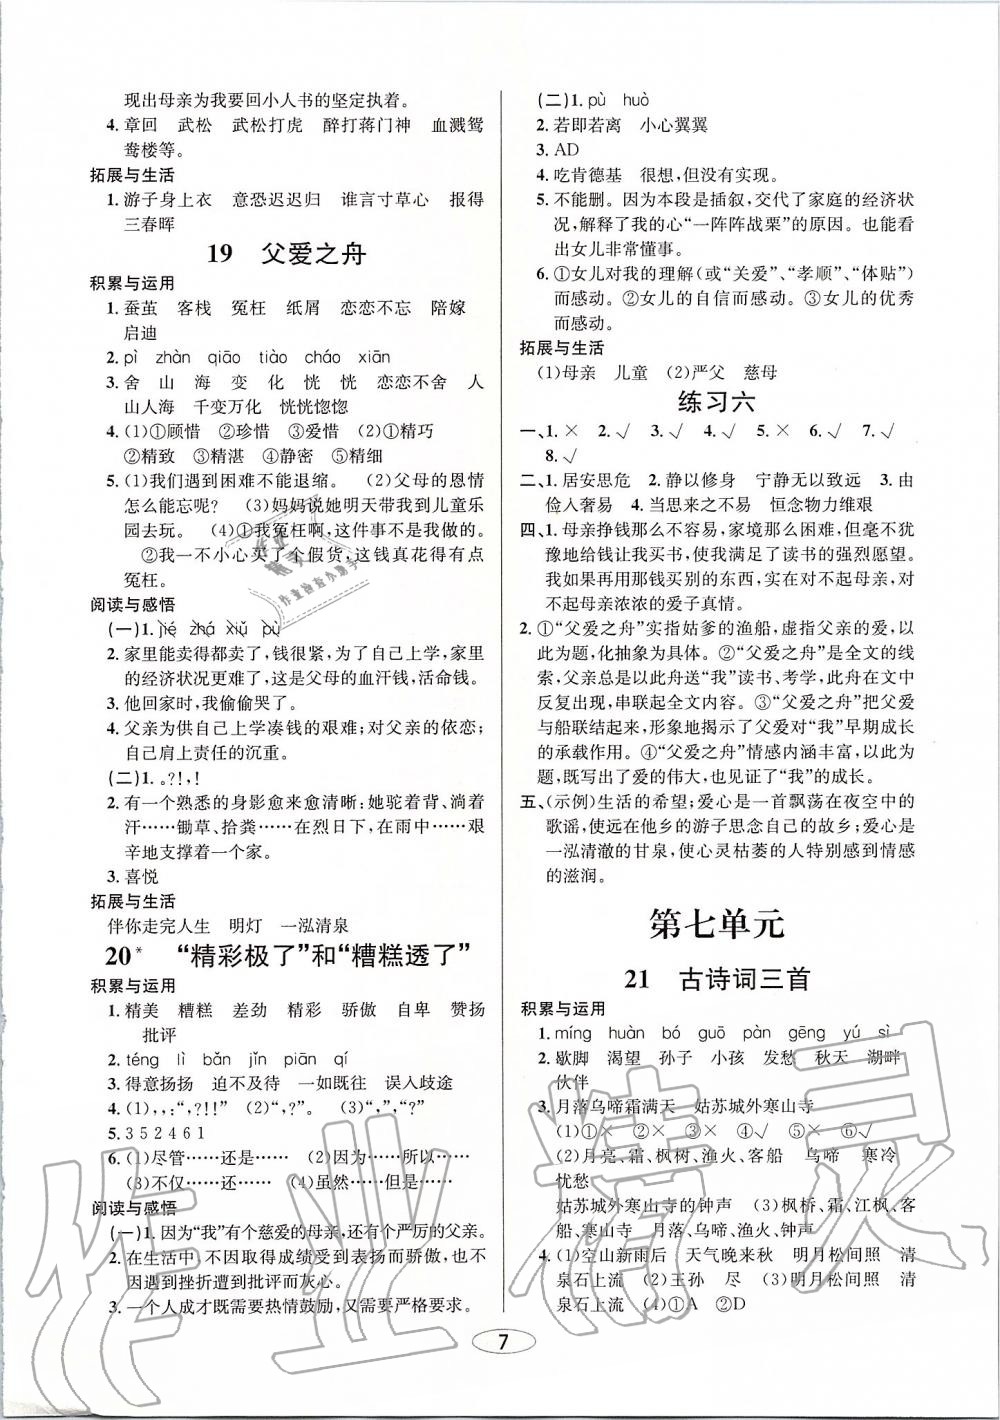 现出母亲为我要回小人书的坚定执着。
4. 章回 武松 武松打虎 醉打蒋门神 血溅鸳
鸯楼等。
拓展与生活
1. 游子身上衣 意恐迟迟归 谁言寸草心 报得
三春晖
19 父爱之舟
积累与运用
1. 蚕茧 客栈 冤枉 纸屑 恋恋不忘 陪嫁
启迪
2. pì zhàn qiāo tiào cháo xiān
3. 舍 山 海 变 化 恍 恍 恋恋不舍 人
山人海 千变万化 恍恍惚惚
4. (1)①顾惜 ②珍惜 ③爱惜 (2)①精巧
②精致 ③精湛 ④静密 ⑤精细
5. (1)我们遇到困难不能退缩。 (2)父母的恩情
怎么能忘呢? (3)妈妈说她明天带我到儿童乐
园去玩。 (4)①我冤枉啊,这件事不是我做的。
②我一不小心买了个假货,这钱真花得有点
冤枉。
阅读与感悟
(一)1. jié zhá xiǔ pù
2. 家里能卖得都卖了,钱很紧,为了我上学,家里
的经济状况更难了,这是父母的血汗钱,活命钱。
3. 他回家时,我偷偷哭了。
4. 父亲为供自己上学凑钱的艰难;对父亲的依恋;
自己肩上责任的沉重。
(二)1. 。?!,!
2. 有一个熟悉的身影愈来愈清晰:她驼着背、淌着
汗……锄草、拾粪……在烈日下,在雨中……艰
辛地支撑着一个家。
3. 喜悦
拓展与生活
伴你走完人生 明灯 一泓清泉
20* “精彩极了”和“糟糕透了”
积累与运用
1. 精美 糟糕 差劲 精彩 骄傲 自卑 赞扬
批评
2. téng lì bǎn jǐn piān qí
3. 得意扬扬 迫不及待 一如既往 误入歧途
4. (1),,:“,?!!” (2)“,?” (3)“,”,“,”
5. 3 5 2 4 6 1
6. (1)尽管……还是…… (2)因为……所以……
(3)不仅……还是…… (4)虽然……但是……
阅读与感悟
(一)1. 因为“我”有个慈爱的母亲,还有个严厉的父亲。
2. 在生活中,不因取得成绩受到表扬而骄傲,也不
因遇到挫折遭到批评而灰心。
3. 一个人成才既需要热情鼓励,又需要严格要求。
(二)1. pù huò
2. 若即若离 小心翼翼
3. AD
4. 吃肯德基 很想,但没有实现。
5. 不能删。因为本段是插叙,交代了家庭的经济状
况,解释了我的心“一阵阵战栗”的原因。更能
看出女儿非常懂事。
6. ①女儿对我的理解(或“关爱”、“孝顺”、“体贴”)
而感动。②女儿的自信而感动。③女儿的优秀
而感动。
拓展与生活
(1)母亲 儿童 (2)严父 慈母
练习六
一、1. × 2. √ 3. √ 4. √ 5. × 6. √ 7. √
8. √
二、1. 居安思危 2. 静以修身 宁静无以致远 3. 由
俭人奢易 4. 当思来之不易 恒念物力维艰
四、1. 母亲挣钱那么不容易,家境那么困难,但毫不犹
豫地给钱让我买书,使我满足了读书的强烈愿望。
我如果再用那钱买别的东西,实在对不起母亲,对
不起母亲浓浓的爱子真情。
2. ①“父爱之舟”实指姑爹的渔船,虚指父亲的爱,以
此为题,化抽象为具体。②“父爱之舟”是全文的线
索,父亲总是以此舟送“我”读书、考学,此舟在文中
反复出现,串联起全文内容。③“父爱之舟”把父爱
与船联结起来,形象地揭示了父爱对“我”早期成长
的承载作用。④“父爱之舟”情感内涵丰富,以此为
题,既写出了爱的伟大,也见证了“我”的成长。
五、(示例)生活的希望;爱心是一首飘荡在夜空中的
歌谣,使远在他乡的游子思念自己的故乡;爱心是
一泓清澈的甘泉,使心灵枯萎的人特别感到情感
的滋润。
第七单元
21 古诗词三首
积累与运用
1. míng huàn bó guō pàn gēng yú sì
2. 歇脚 渴望 孙子 小孩 发愁 秋天 湖畔
伙伴
3. 月落乌啼霜满天 姑苏城外寒山寺
(1)①× ②× ③× ④√ ⑤× ⑥√
(2)月亮、霜、枫树、渔火、客船 乌啼 寒冷
忧愁
姑苏城外寒山寺的钟声 (3)枫桥、霜、江枫、客
船、寒山寺 月落、乌啼、渔火、钟声
4. (1)空山新雨后 天气晚来秋 明月松间照 清
泉石上流 (2)王孙 尽 (3)明月松间照 清
泉石上流 (4)①A ②D
7
作业精灵